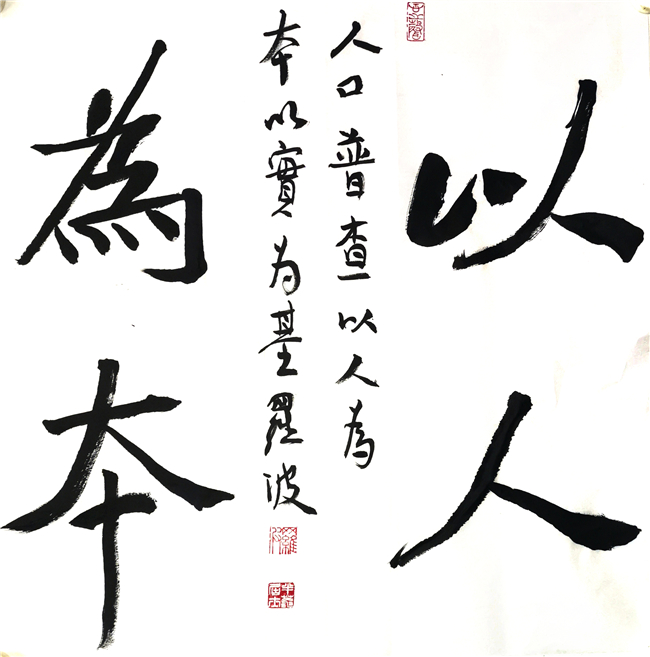 以人
為本
人口普查以人為
本以實为基羅波